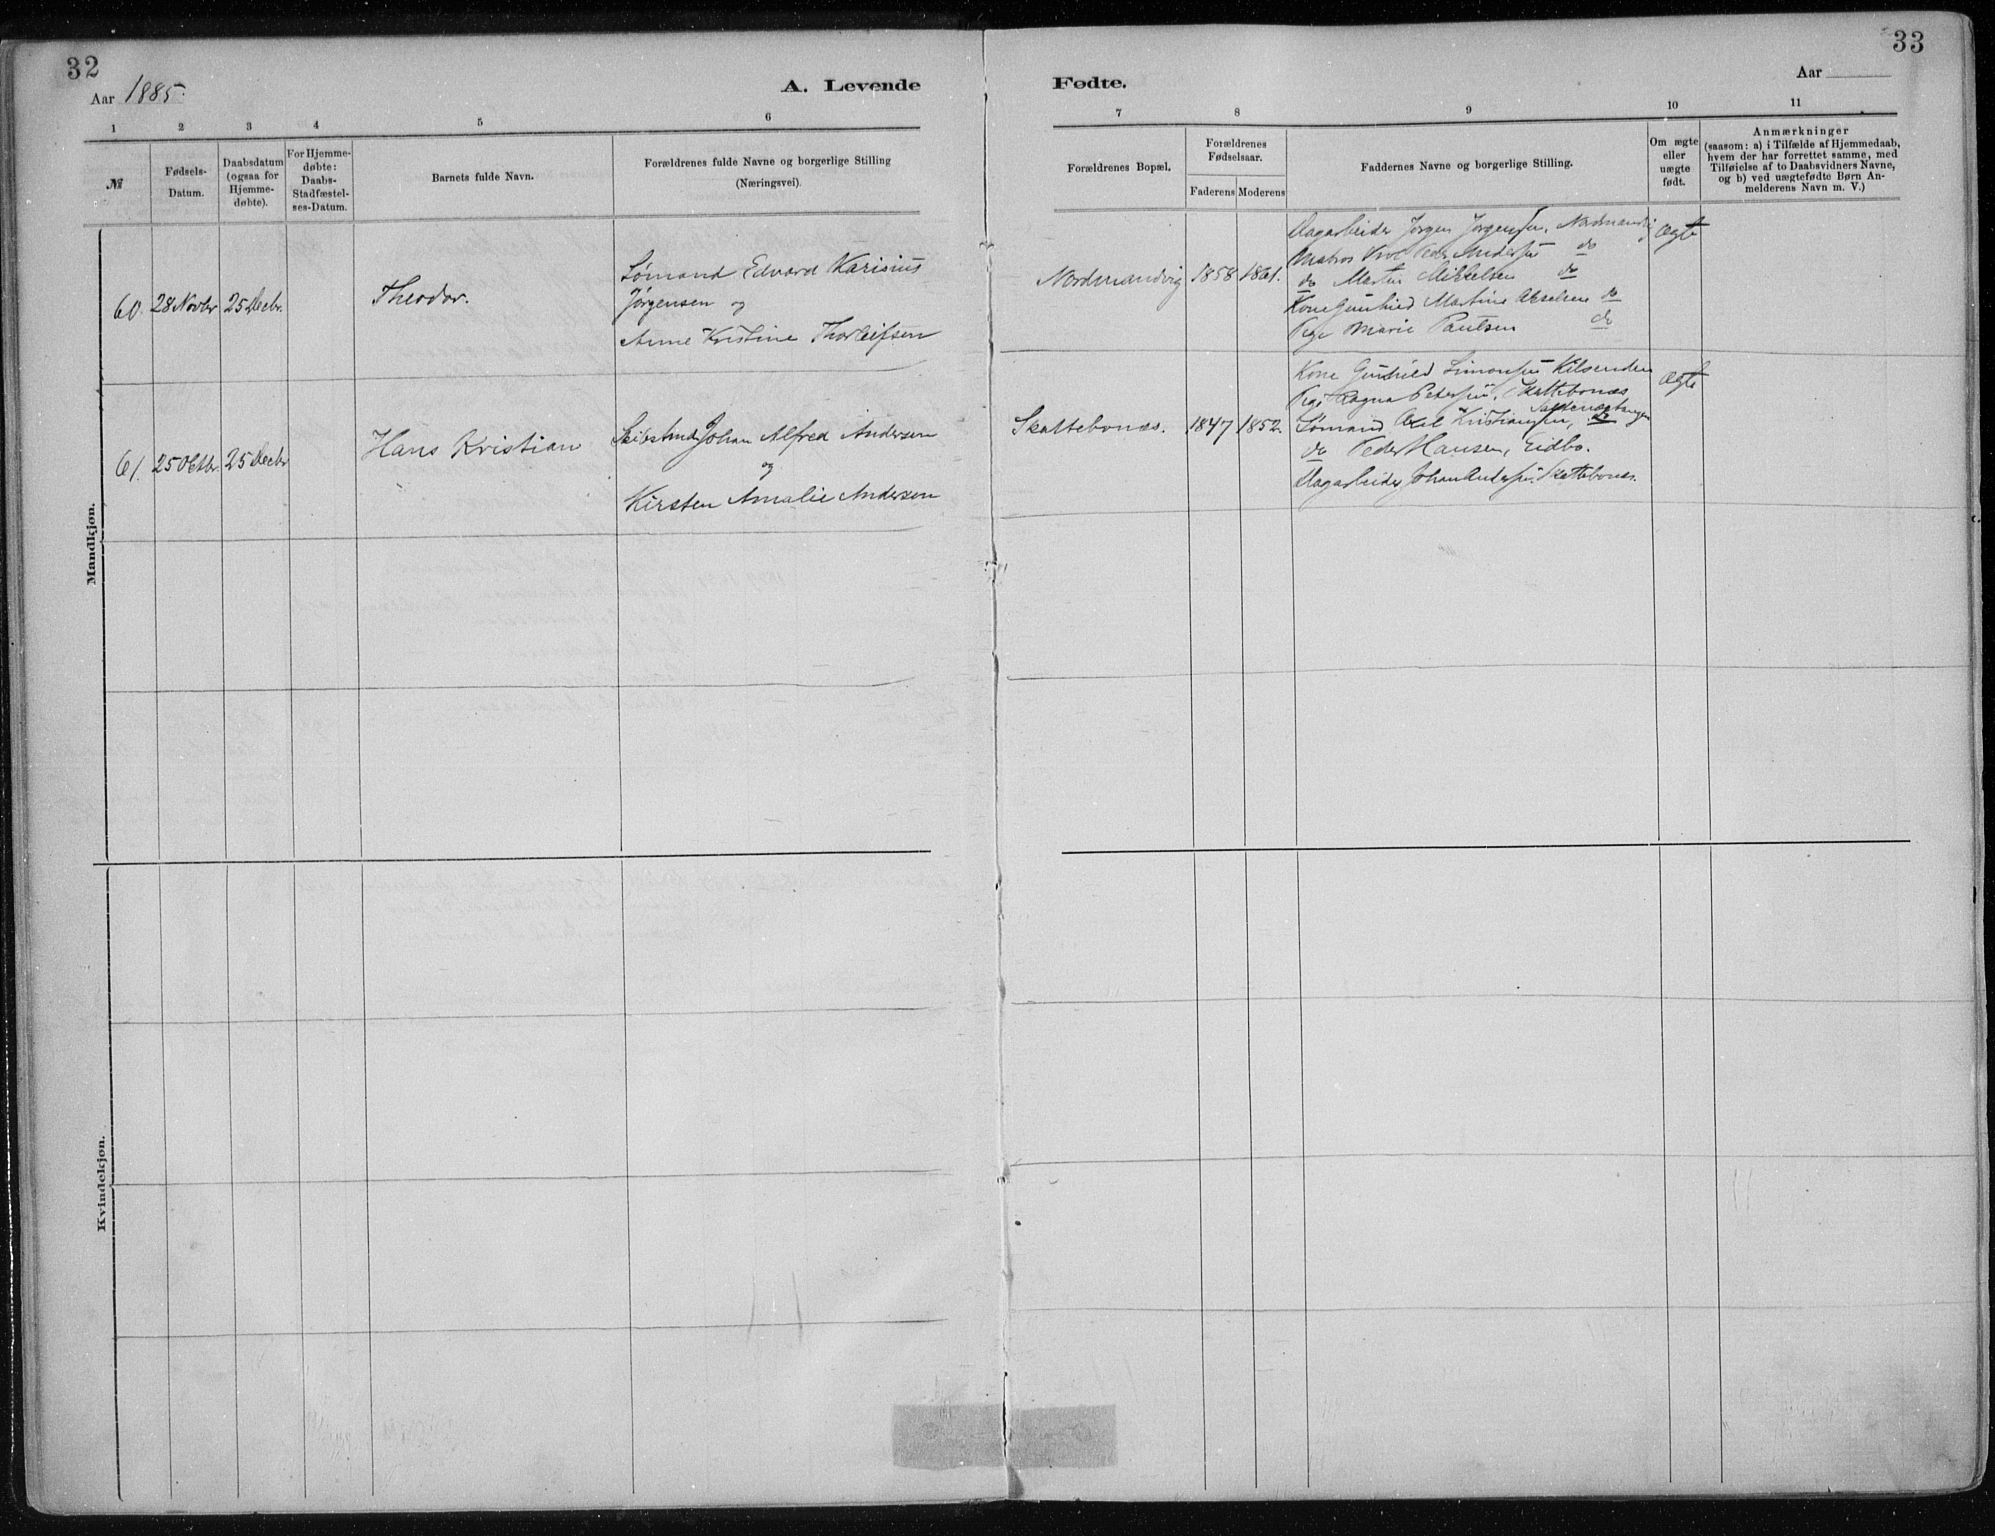 32
Aar 1885.
A. Levende
1
2
3
4
5
6
№
Fødsels-
Datum.
Daabsdatum
(ogsaa for
Hjemme-
døbte).
For Hjemme-
døbte:
Daabs-
Stadfæstel-
ses-Datum.
Barnets fulde Navn.
Forældrenes fulde Navne og borgerlige Stilling
(Næringsvei).
Mandkjøn.
60. 28 Novbr 25 Decbr.
Theodor.
Sømand Edvard Karisius
Jørgensen og
Anne Kristine Thorleifsen
61. 25 Octbr. 25 Decbr
Hans Kristian
Johan Alfred Andersen
og
Kirsten Amalie Andersen
Kvindekjøn.
33
Fødte.
Aar
7
8
9
10
11
Forældrenes Bopæl.
Forældrenes
Fødselsaar.
Faderens
Moderens
Faddernes Navne og borgerlige Stilling.
Om ægte
eller
uægte
født.
Anmærkninger
(saasom: a) i Tilfælde af Hjemmedaab,
hvem der har forrettet samme, med
Tilføielse af to Daabsvidners Navne,
og b) ved uægtefødte Børn An-
melderens Navn m. V.)
Nordmandvig
1858
1861.
Dagarbeider Jørgen Jørgensen, Nordmandvig
Matros Andersen do
do Martin Mikkelsen do
Kone Gunhild Martine Akselsen do
Pige Marie Paulsen do
Ægte
Skattebonæs.
1847
1852.
Kone Gunhild Simonsen Kilsenden
Pige Ragna Petersen, Skattebonæs
Sømand Axel Kristiansen,
do Peder Hansen, Eidbo.
Dagarbeider Johan Andersen Skattebonæs.
Ægte